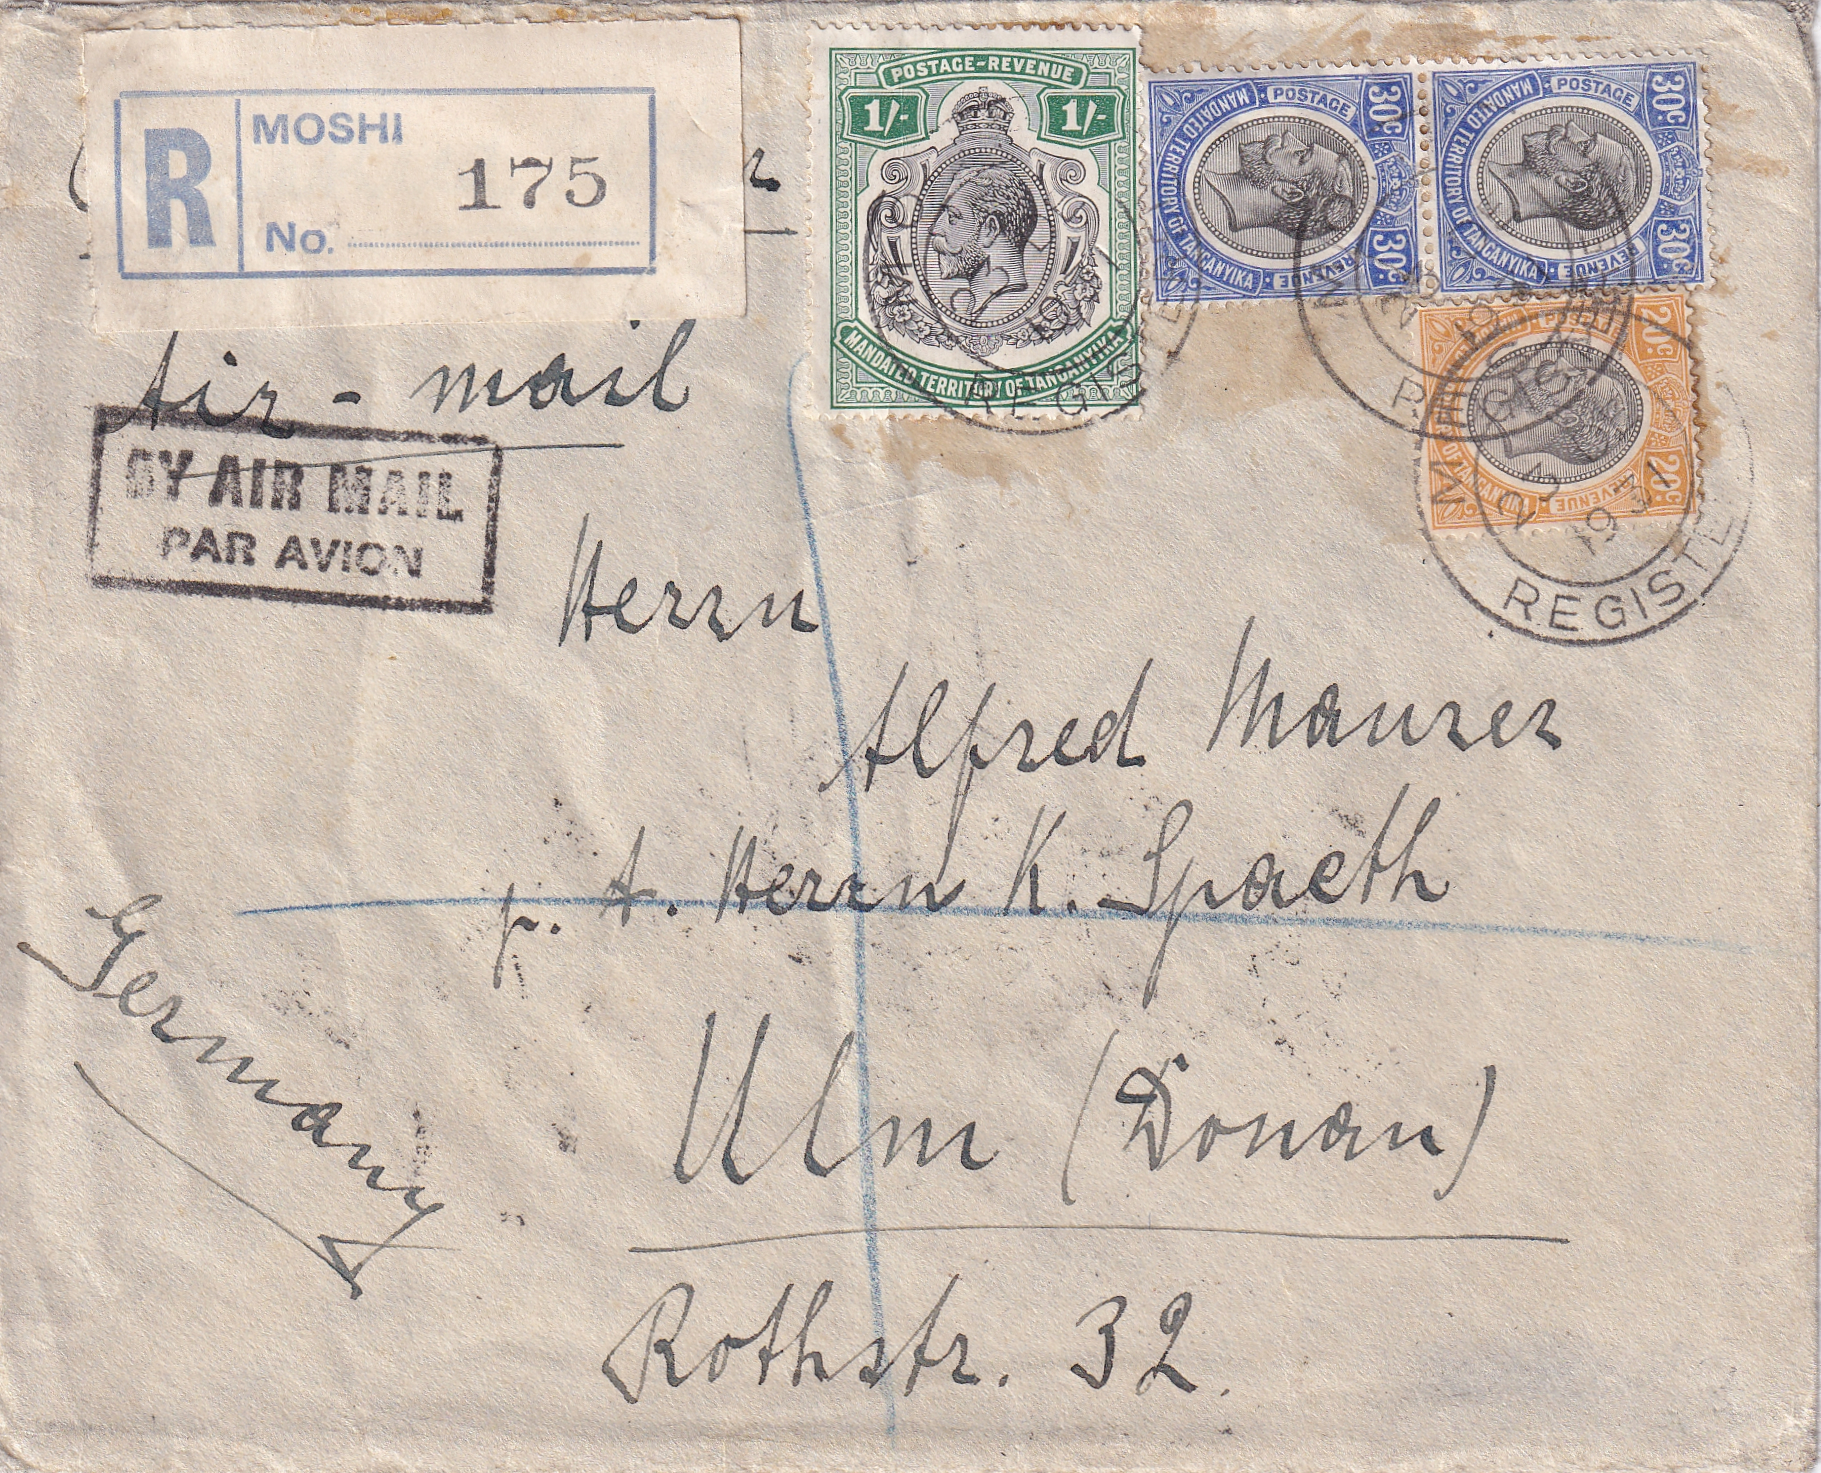 R
MOSHI
No. 175
POSTAGE-REVENUE
1/- 1/-
MANDATED TERRITORY OF TANGANYIKA
30c POSTAGE MANDATED TERRITORY OF TANGANYIKA REVENUE 30c
30c POSTAGE MANDATED TERRITORY OF TANGANYIKA REVENUE 30c
20c REVENUE 20c
REGIS
REGISTE
1931
Air-mail
BY AIR MAIL
PAR AVION
Herrn
Alfred Maurer
p. A. Herrn K. Spaeth
Ulm (Donau)
Rothstr. 32.
Germany